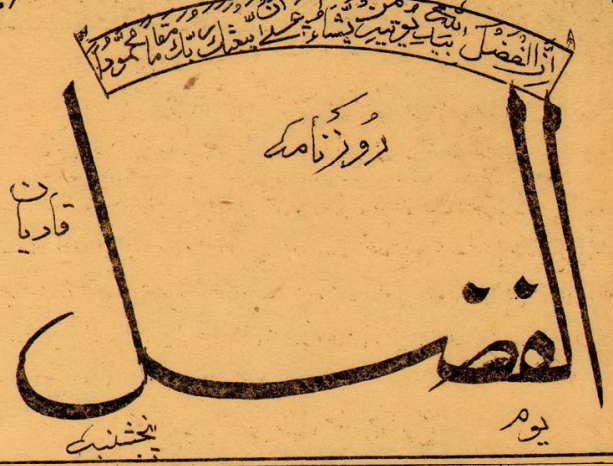 ان الفضل بيد الله يوتيه من يشاء عسى ان يبعثك ربك مقاما محمودا
روزنامہ
قادیان
الفضل
یوم پنجشنبہ